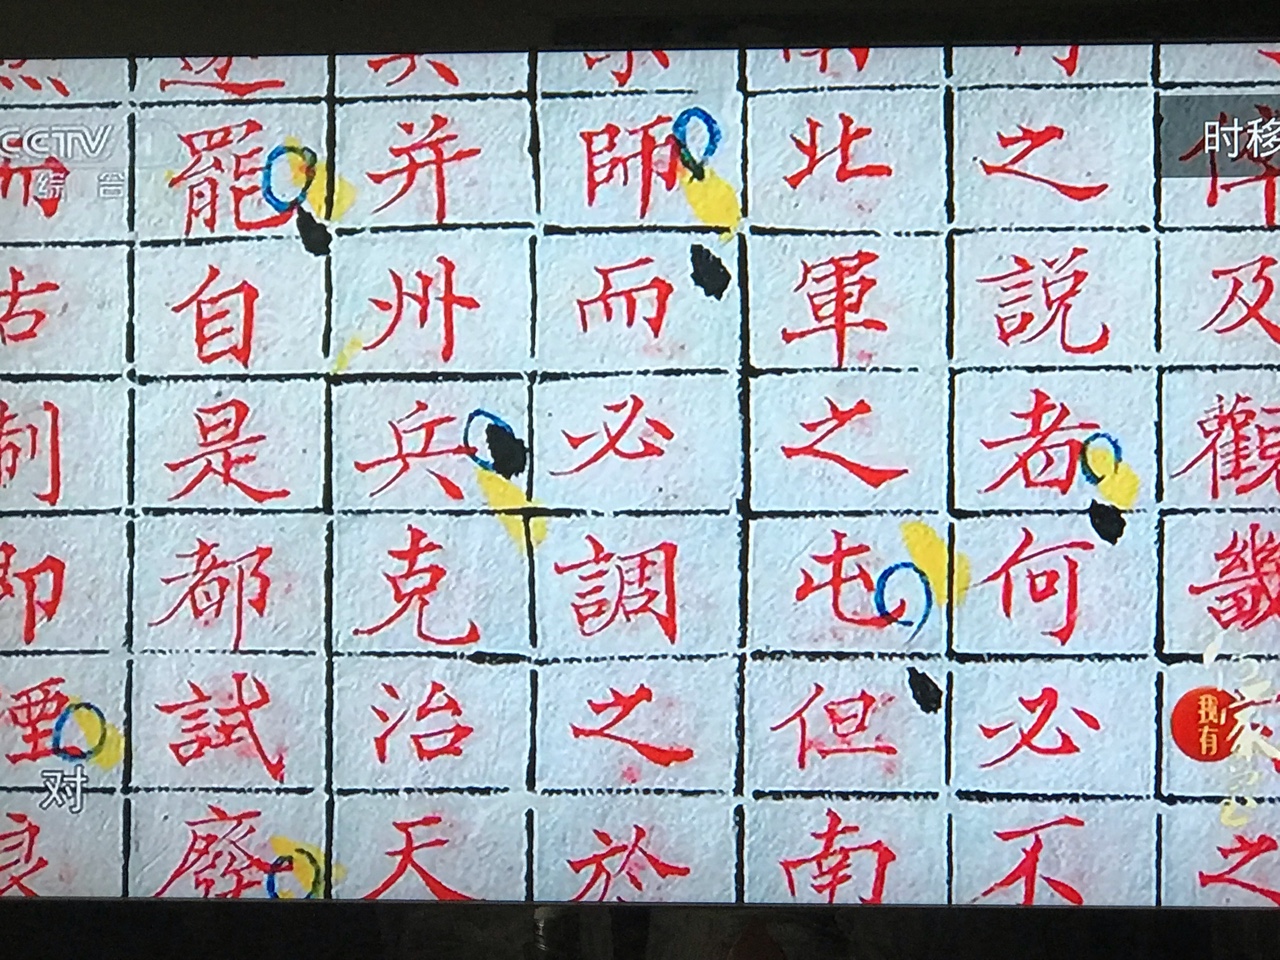 及觀畿之
之說者何必不
北軍之屯但南
師而必調之於
并州兵克治天
罷自是都試廢
古制即湮良
CCTV
综合
时移
我有
对